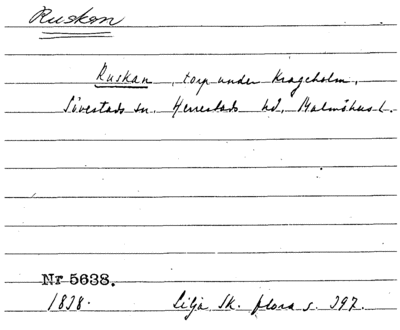 Ruskan
Ruskan, torp under Krageholm,
Sövestads sn. Herrestads hd, Malmöhus l.
Nr 5638.
1838. Lilja Sk. flora s. 397.